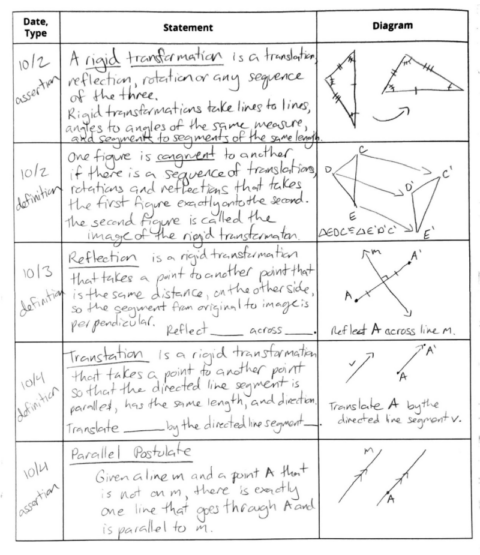 Date, Type
Statement
Diagram
10/2
assertion
A rigid transformation is a translation,
reflection, rotation or any sequence
of the three.
Rigid transformations take lines to lines,
angles to angles of the same measure,
and segments to segments of the same length.
10/2
definition
One figure is congruent to another
if there is a sequence of translations,
rotations and reflections that takes
the first figure exactly onto the second.
The second figure is called the
image of the rigid transformation.
C
D
E
C'
D'
E'
△EDC≅△E'D'C'
10/3
definition
Reflection is a rigid transformation
that takes a point to another point that
is the same distance, on the other side,
so the segment from original to image is
perpendicular.
Reflect ____ across ____.
m
A'
A
Reflect A across line m.
10/4
definition
Translation is a rigid transformation
that takes a point to another point
so that the directed line segment is
parallel, has the same length, and direction.
Translate ____ by the directed line segment ___.
v
A'
A
Translate A by the
directed line segment v.
10/4
assertion
Parallel Postulate
Given a line m and a point A that
is not on m, there is exactly
one line that goes through A and
is parallel to m.
m
A